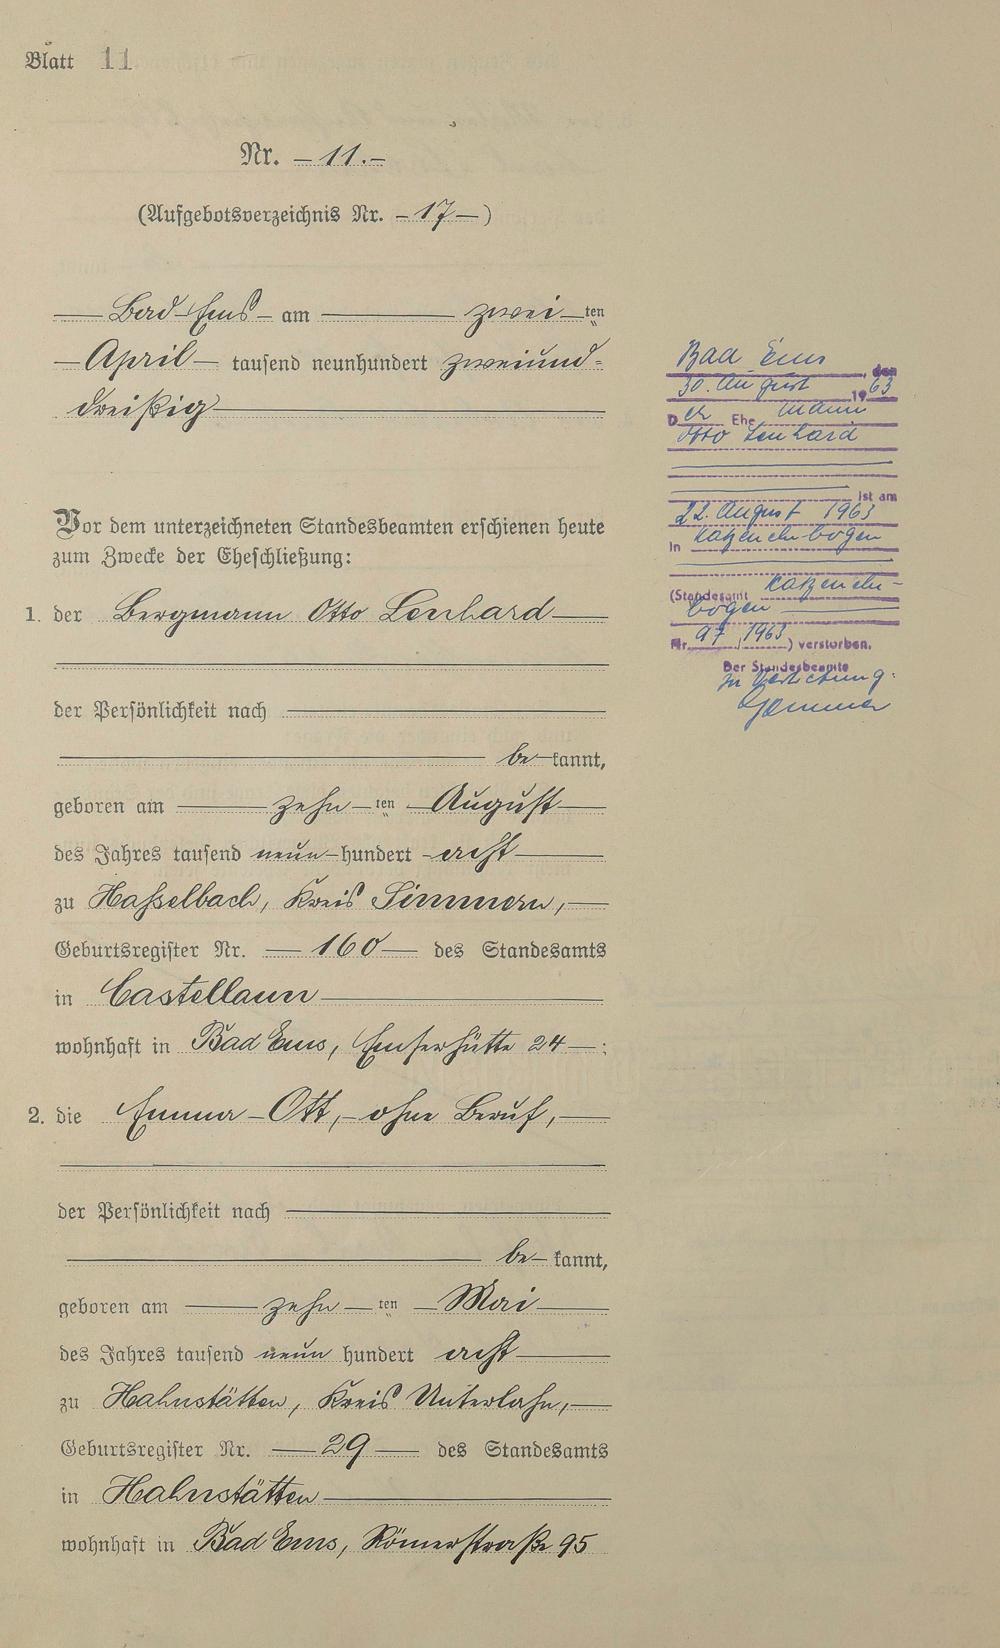 Blatt 11
Nr. — 11. —
(Aufgebotsverzeichnis Nr. — 17 — )
— Bad-Ems — am — zwei — ten
— April — tausend neunhundert zweiund-
dreißig —
Vor dem unterzeichneten Standesbeamten erschienen heute
zum Zwecke der Eheschließung:
1. der Bergmann Otto Lenhard —
der Persönlichkeit nach —
— be — kannt,
geboren am — zehn — ten — August —
des Jahres tausend neun — hundert — acht —
zu Hasselbach, Kreis Simmern, —
Geburtsregister Nr. — 160 — des Standesamts
in Castellaun —
wohnhaft in Bad Ems, Emserhütte 24 — ;
2. die Emma — Ott, — ohne Beruf, —
der Persönlichkeit nach —
— be — kannt,
geboren am — zehn — ten — Mai —
des Jahres tausend neun hundert acht —
zu Hahnstätten, Kreis Unterlahn, —
Geburtsregister Nr. — 29 — des Standesamts
in Hahnstätten —
wohnhaft in Bad Ems, Römerstraße 95
Bad Ems, den
30. August 1963
Der Ehemann
Otto Lenhard
ist am
22. August 1963
in Katzenelnbogen
(Standesamt Katzeneln-
bogen —
Nr. 97/1963) verstorben.
Der Standesbeamte
In Vertretung: